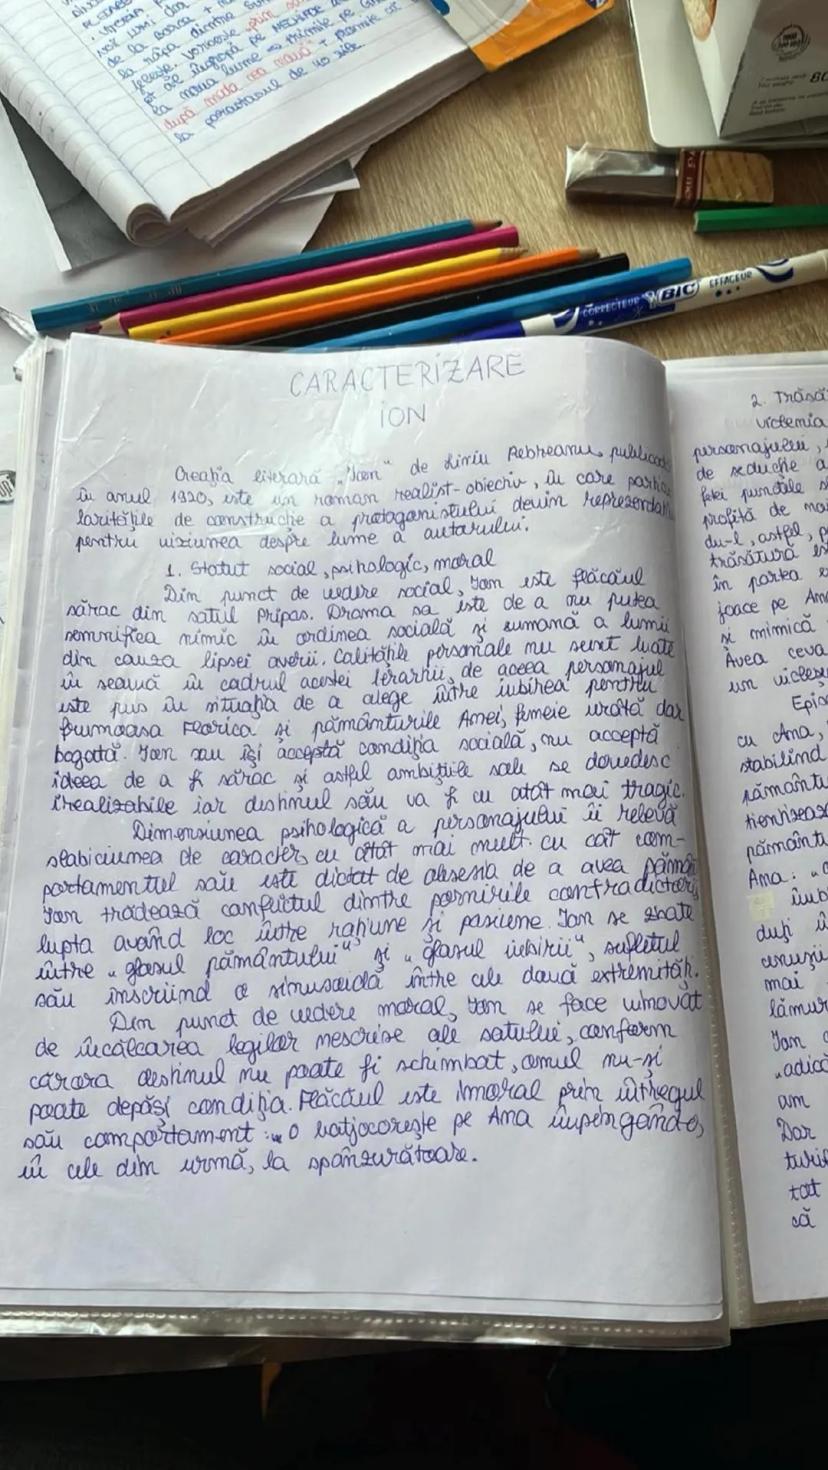 de la
la râpa dintre
după moartea
la parastasul de 40 zile.
CORRECTEUR BIC EFFACEUR
CARACTERIZARE
ION
Creația literară „Ion" de Liviu Rebreanu, publicată
în anul 1920, este un roman realist-obiectiv, în care particu
laritățile de construcție a protagonistului devin reprezentati
pentru viziunea despre lume a autorului.
1. Statut social, psihologic, moral
Din punct de vedere social, Ion este flăcăul
sărac din satul Pripas. Drama sa este de a nu putea
semnifica nimic în ordinea socială și umană a lumii
din cauza lipsei averii. Calitățile personale nu sunt luate
în seamă în cadrul acestei ierarhii, de aceea personajul
este pus în situația de a alege între iubirea pentru
frumoasa Florica și pământurile Anei, femeie urâtă dar
bogată. Ion nu își acceptă condiția socială, nu acceptă
ideea de a fi sărac și astfel ambițiile sale se dovedesc
irealizabile iar destinul său va fi cu atât mai tragic.
Dimensiunea psihologică a personajului îi relevă
slabiciunea de caracter, cu atât mai mult cu cât com-
portamentul său este dictat de obsesia de a avea pământ
Ion trădează conflictul dintre pornirile contradictorii,
lupta având loc între rațiune și pasiune. Ion se zbate
între „glasul pământului" și „glasul iubirii", sufletul
său înscriind o sinusoidă între cele două extremități.
Din punct de vedere moral, Ion se face vinovat
de încălcarea legilor nescrise ale satului, conform
cărora destinul nu poate fi schimbat, omul nu-și
poate depăși condiția. Flăcăul este imoral prin întregul
său comportament: o batjocorește pe Ana împingând-o,
în cele din urmă, la spânzurătoare.
2. Trăsă
viclenia
personajului,
de seducție a
fetei punctele
profită de
du-l, astfel,
trăsătură
în partea
joace pe
și mimică
Avea ceva
un
Epis
cu Ana,
stabilind
pământu
pământu
Ana: „
iub
duți
mai
lămur
Ion
„adică
am
Dar
tot
să